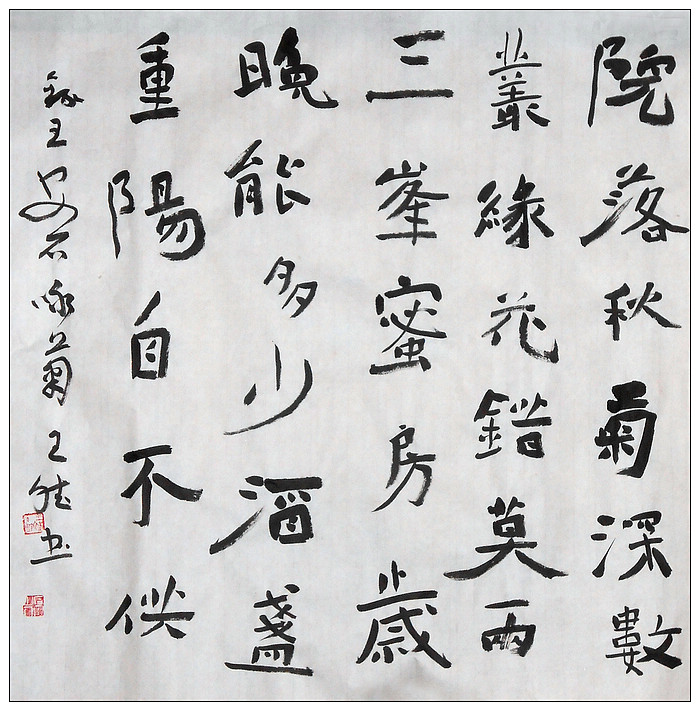 院落秋菊深數
叢緣花錯莫兩
三峯蜜房歲
晚能多少酒盞
重陽自不供
錄王安石咏菊 王书